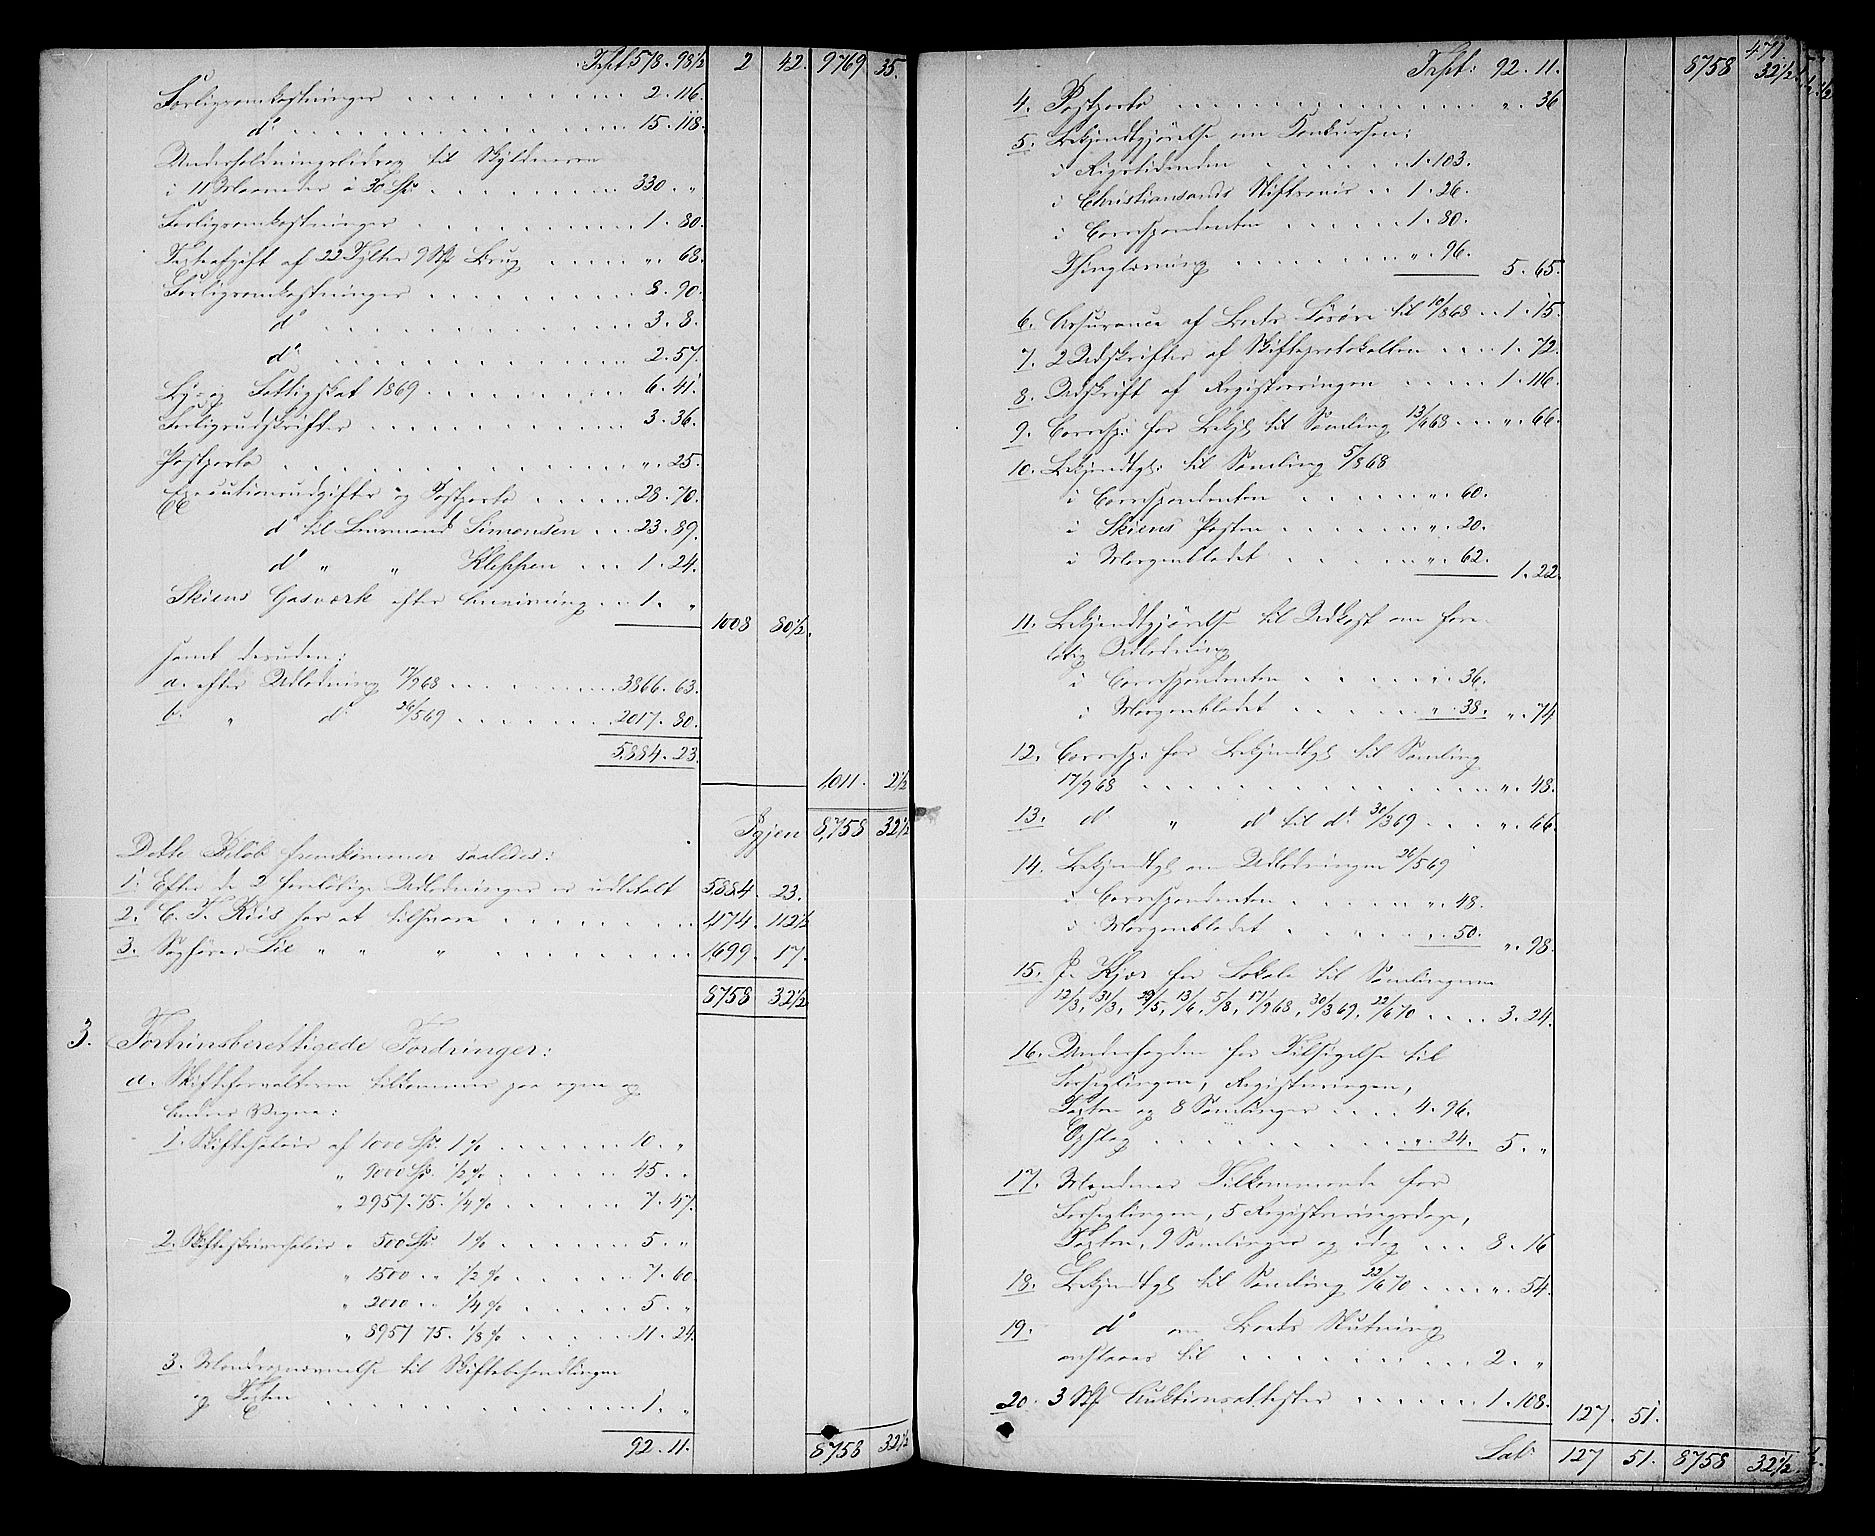 Trspt 578. 98½ 2 42. 9769 35.
Forligsomkostninger 2. 116.
do 15. 118.
Underholdningsbidrag til Skyldneren
i 11 Maaneder á 30 Sp: 330. "
Forligsomkostninger 1. 80.
af 22 Tylter 9 Stk " 68.
Forligsomkostninger 8. 90.
do 3. 8.
do 2. 57.
By- og Fattigskat 1869 6. 41.
Forligsudskrifter 3. 36.
Postporto ". 25.
Executionsudgifter og Postporto 28. 70.
do til Lensmand Simonsen 23. 89.
do " " Kleppen 1. 24.
Skiens Gasværk efter Anvisning 1. "
1008 80½.
samt desuden:
a. efter Udlodning 17/9 68 3866. 63.
b. " do 26/5 69 2017. 80.
5884. 23.
1011. 2½
Igjen 8758 32½
Dette Beløb fremkommer saaledes:
1. Efter de 2 foreløbige Udlodninger er udbetalt 5884. 23.
2. C. T. Riis har at tilsvare 1174. 112½
3. Sagfører Lie " " " 1699. 17.
8758 32½
3. Fortrinsberettigede Fordringer:
a. Skifteforvalteren tilkommer paa egne og
Andres Vegne:
1. Skiftesalair af 1000 Sp. 1% 10. "
" 9000 Sp. ½% 45. "
" 2957. 75. ¼% 7. 47.
2. Skifteskriversalair " 500 Sp. 1% 5. "
" 1500 " ½% 7. 60.
" 2000 " ¼% 5. "
" 8957 75. ⅛% 11. 24.
3. Mandsopnævnelse til Skiftebehandlingen
og Taxten 1. "
92. 11. 8758 32½
471.
Trspt: 92. 11. 8758 32½
4. Postporto ". 36
5. Bekjendtgjørelse om Konkursen:
i Rigstidenden 1. 103.
i Christiansands Stiftsavis 1. 26.
i Correspondenten 1. 80.
Thinglæsning ". 96. 5. 65.
6. Assurance af Boets Løsøre til 10/8 68 1. 15.
7. 2 Udskrifter af Skifteprotokollen 1. 72.
8. Udskrift af Registreringen 1. 116.
9. Corresp: for Bekjg til Samling 13/6 68 ". 66.
10. Bekjendtg: til Samling 5/8 68
i Correspondenten ". 60.
i Skiens Posten ". 20.
i Morgenbladet ". 62. 1. 22.
11. Bekjendtgjørelse til Udkast om fore-
løbig Udlodning
i Correspondenten ". 36.
i Morgenbladet ". 38. ". 74
12. Corresp: for Bekjendtg til Samling
17/9 68 ". 48.
13. do " do til do 30/3 69 ". 66.
14. Bekjendtg om Udlodningen 26/5 69
i Correspondenten ". 48.
i Morgenbladet ". 50. ". 98.
15. J. Kjær for Lokale til Samlingerne
12/3, 31/3, 29/5, 13/6, 5/8, 17/9 68, 30/3 69, 22/6 70 3. 24.
16. Underfogden for Tilsigelse til
Forseglingen, Registreringen,
Taxten og 8 Samlinger 4. 96.
Opslag ". 24. 5. "
17. Mændenes Tilkommende for
Forseglingen, 5 Registreringsdage,
Taxten, 9 Samlinger og idag 8. 16
18. Bekjendtg til Samling 22/6 70 ". 54.
19. do om Boets Slutning
ansættes til 2. "
20. 3 Stk Auktionsattester 1. 108.
127. 51.
Lat. 127 51. 8758 32½